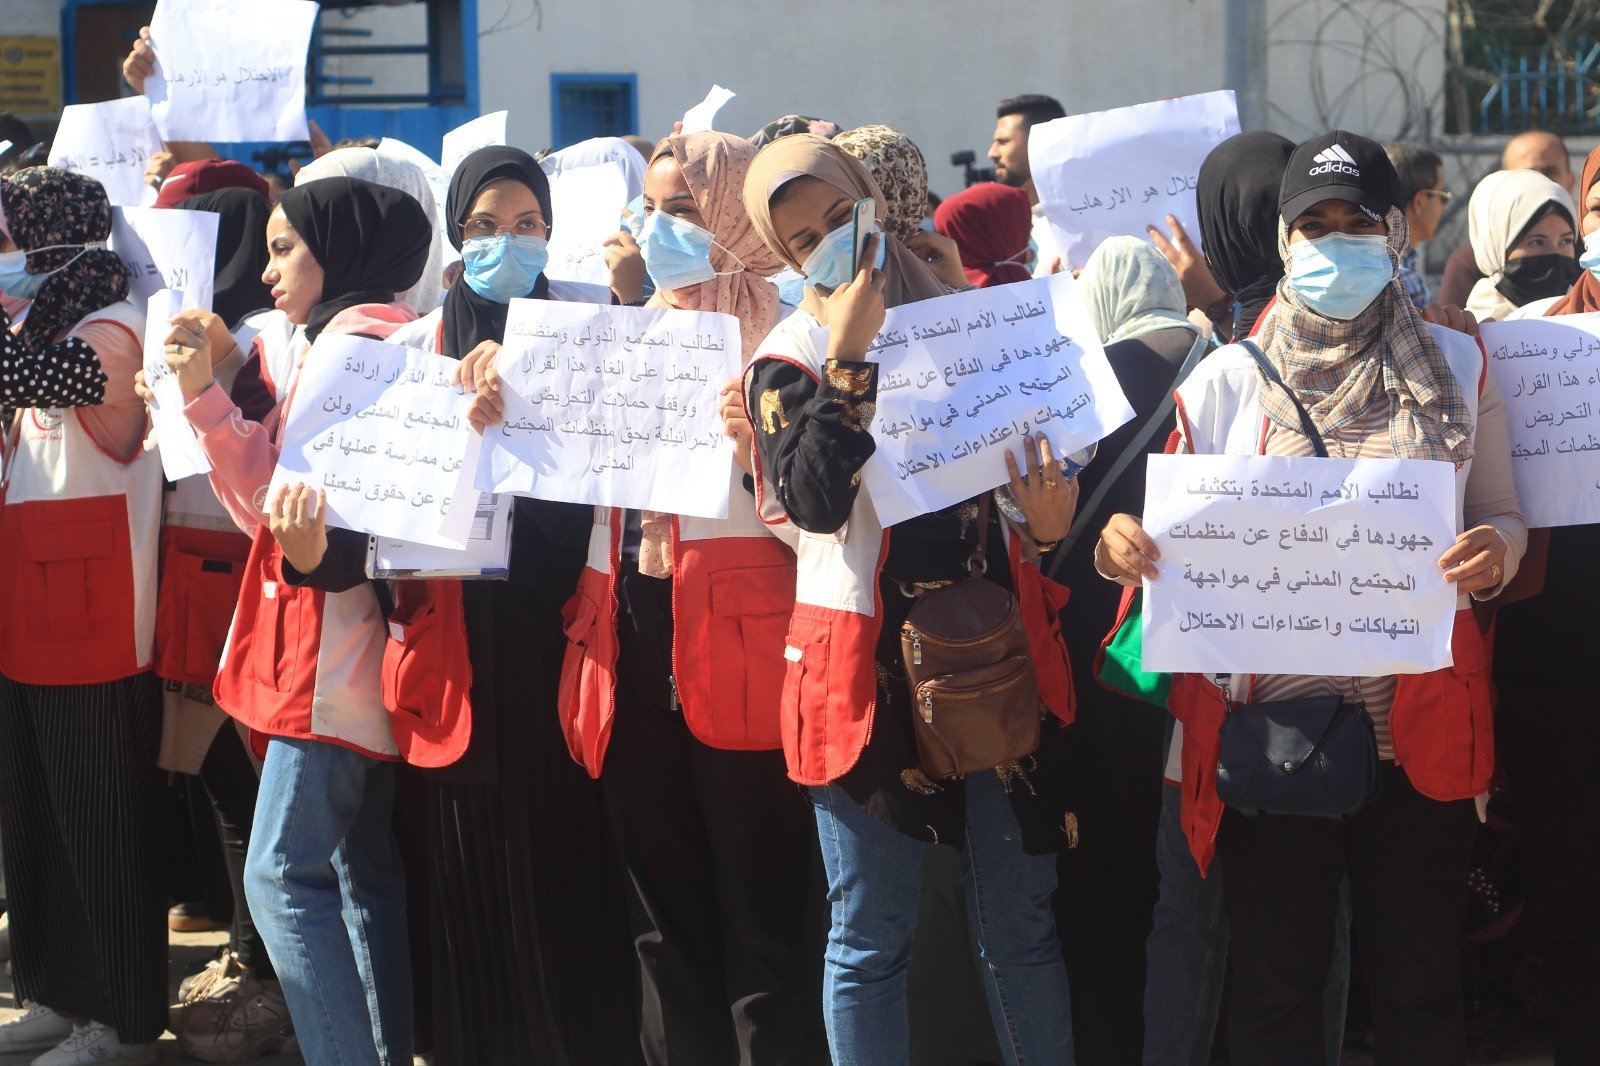 الاحتلال هو الارهاب
= الارهاب
الاره
=
هذا القرار إرادة
المجتمع المدني ولن
عن ممارسة عملها في
عن حقوق شعبنا
نطالب المجتمع الدولي ومنظماته
بالعمل على الغاء هذا القرار
ووقف حملات التحريض
الإسرائيلية بحق منظمات المجتمع
المدني
نطالب الأمم المتحدة بتكثيف
جهودها في الدفاع عن
المجتمع المدني في مواجهة
انتهكات واعتداءات الاحتلال
هو الارهاب
adidas
adidas
نطالب الأمم المتحدة بتكثيف
جهودها في الدفاع عن منظمات
المجتمع المدني في مواجهة
انتهاكات واعتداءات الاحتلال
ومنظماته
هذا القرار
التحريض
المجتم